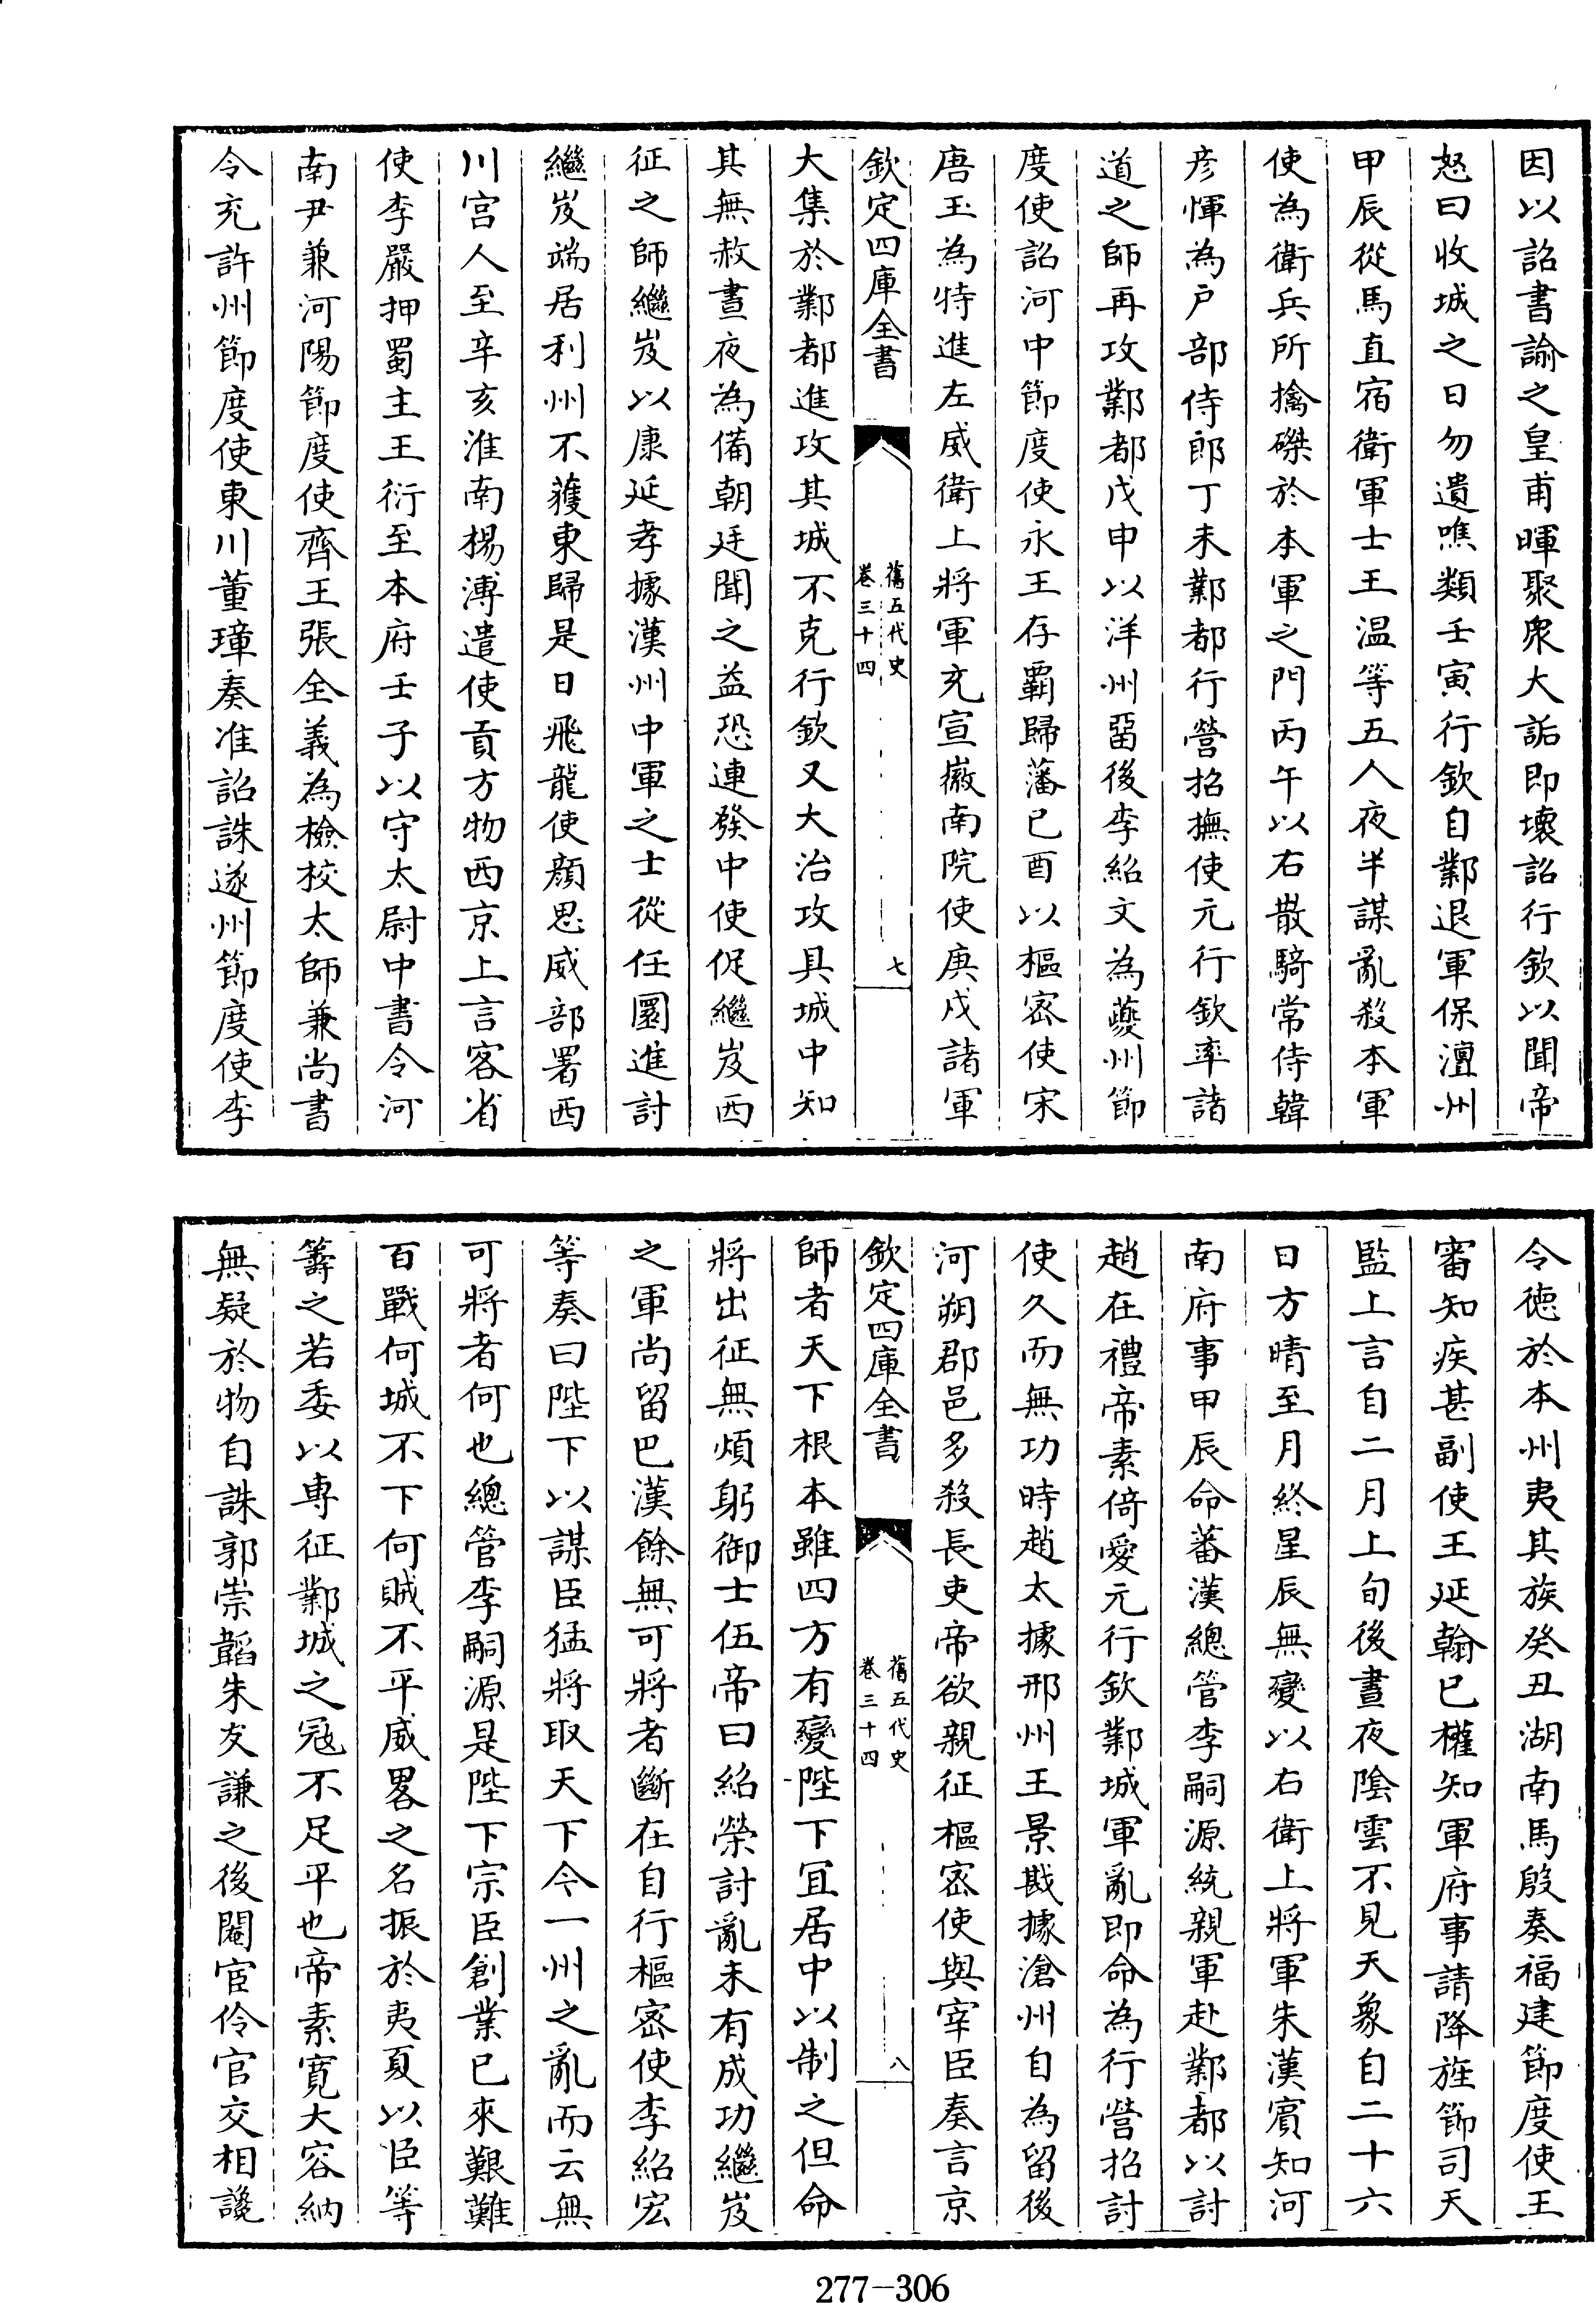 因以詔書諭之皇甫暉聚衆大詬即壞詔行欽以聞帝
怒曰收城之日勿遺噍類壬寅行欽自鄴退軍保澶州
甲辰從馬直宿衛軍士王温等五人夜半謀亂殺本軍
使為衛兵所擒磔於本軍之門丙午以右散騎常侍韓
彦惲為户部侍郎丁未鄴都行營招撫使元行欽率諸
道之師再攻鄴都戊申以洋州畱後李紹文為夔州節
度使詔河中節度使永王存霸歸藩已酉以樞宻使宋
唐玉為特進左威衛上將軍充宣徽南院使庚戍諸軍
欽定四庫全書
舊五代史
卷三十四
七
大集於鄴都進攻其城不克行欽又大治攻具城中知
其無赦晝夜為備朝廷聞之益恐連發中使促繼岌西
征之師繼岌以康延孝據漢州中軍之士從任圜進討
繼岌端居利州不獲東歸是日飛龍使顔思威部署西
川宫人至辛亥淮南楊溥遣使貢方物西京上言客省
使李嚴押蜀主王衍至本府壬子以守太尉中書令河
南尹兼河陽節度使齊王張全義為檢校太師兼尚書
令充許州節度使東川董璋奏准詔誅遂州節度使李
令徳於本州夷其族癸丑湖南馬殷奏福建節度使王
審知疾甚副使王延翰已權知軍府事請降旌節司天
監上言自二月上旬後晝夜陰雲不見天象自二十六
日方晴至月終星辰無變以右衛上將軍朱漢賓知河
南府事甲辰命蕃漢總管李嗣源統親軍赴鄴都以討
趙在禮帝素倚愛元行欽鄴城軍亂即命為行營招討
使久而無功時趙太據邢州王景戡據滄州自為留後
河朔郡邑多殺長吏帝欲親征樞宻使與宰臣奏言京
欽定四庫全書
舊五代史
卷三十四
八
師者天下根本雖四方有變陛下宜居中以制之但命
將出征無煩躬御士伍帝曰紹榮討亂未有成功繼岌
之軍尚留巴漢餘無可將者斷在自行樞宻使李紹宏
等奏曰陛下以謀臣猛將取天下今一州之亂而云無
可將者何也總管李嗣源是陛下宗臣創業已來艱難
百戰何城不下何賊不平威畧之名振於夷夏以臣等
籌之若委以専征鄴城之冦不足平也帝素寛大容納
無疑於物自誅郭崇韜朱友謙之後閹宦伶官交相讒
277-306